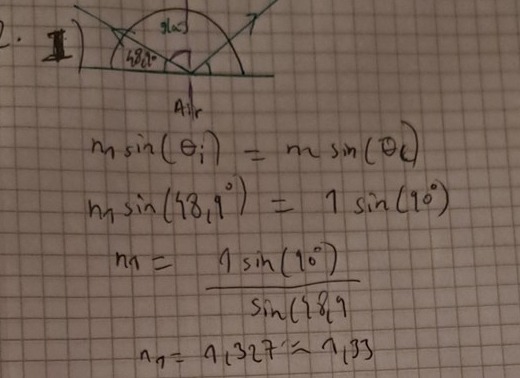 2. I)
glas
48,9°
Air
n sin(θi) = n sin(θt)
n1 sin(48,9°) = 1 sin(90°)
n1 = 1 sin(90°)
sin(48,9
n1 = 1,327 ≈ 1,33